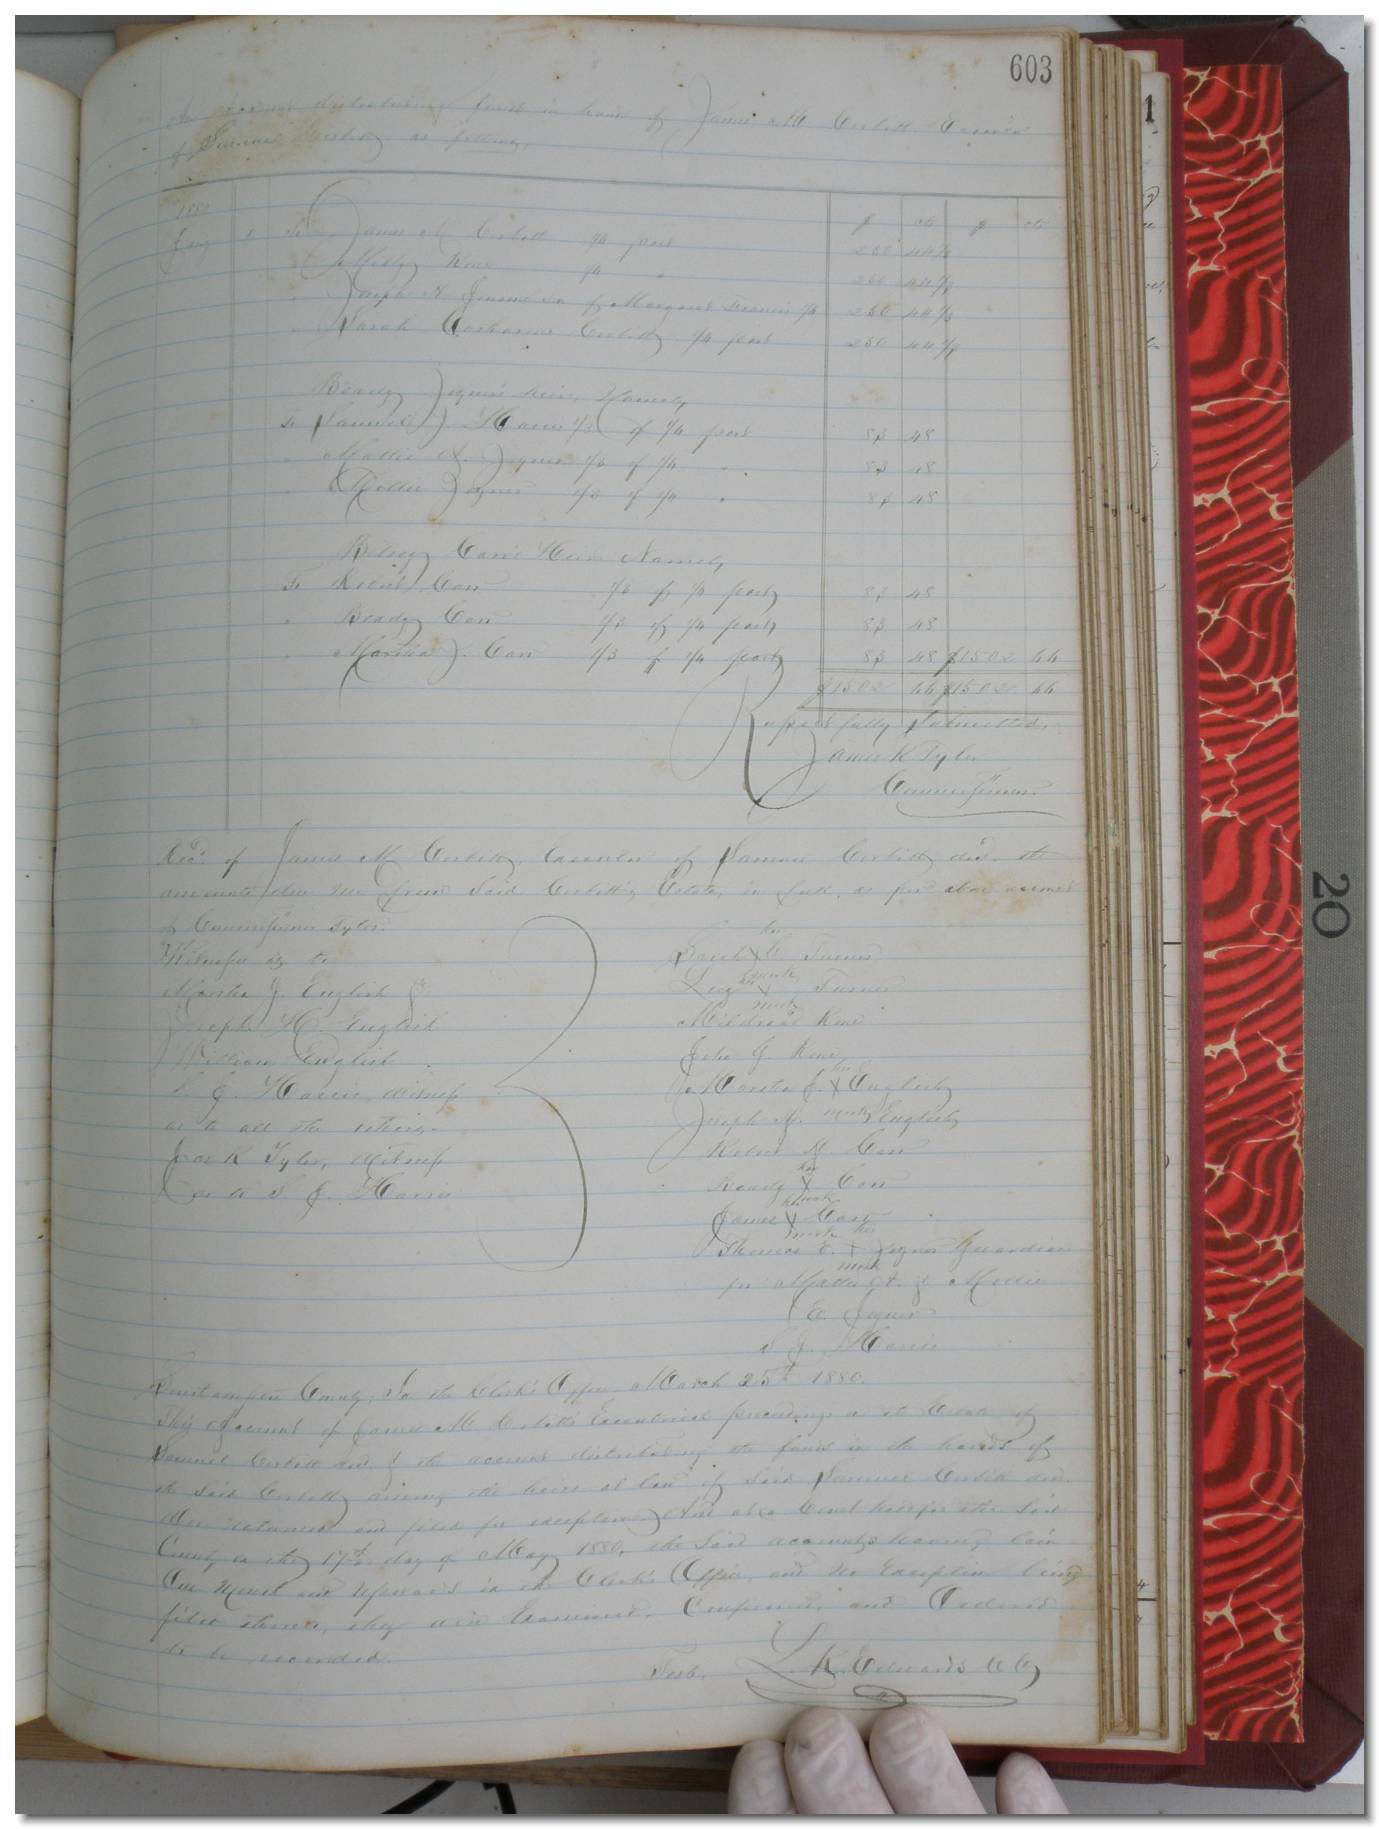 603
An account distributing funds in hands of James M Corbitt Executor
of Samuel Corbitt as follows,
$ cts $ cts
To James M Corbitt 1/4 part 250 44 1/3
" Milly King 1/4 " 250 44 1/3
" Joseph 250 44 1/3
" Sarah Catharine Corbitt 1/4 part 250 44 1/3
Beady Joyner's heirs, Namely,
To Samuel J. Harris 1/3 of 1/4 part 83 48
" Mattie A. Joyner 1/3 of 1/4 " 83 48
" Mollie Joyner 1/3 of 1/4 " 83 48
Betsey Carr's Heirs Namely,
To Robert Carr 1/3 of 1/4 part 83 48
" Beady Carr 1/3 of 1/4 part 83 48
" Martha J. Carr 1/3 of 1/4 part 83 48 $1502 66
$1502 66 $1502 66
Respectfully Submitted,
James K Tyler
Commissioner
Recd. of James M Corbitt, Executor of Samuel Corbitt decd. the
amounts due us from Said Corbitt's Estate, in full, as per above account
of Commissioner Tyler.
Witness as to
Martha J. English &
Joseph H. English
William English
S. J. Harris, Witness
as to all the others.
Jas K Tyler, Witness
as to S J. Harris
Sarah her X mark C Turner
his X mark Turner
Mildred King
John J. King
Martha J. her X mark English
Joseph H. English
Robert H. Carr
Beady her X mark Carr
James his X mark Carr
Thomas E. his X mark Joyner Guardian
for Mattie A. & Mollie
E. Joyner
S. J. Harris
Southampton County, In the Clerk's Office, March 25th 1880.
This account of James M Corbitts Executorial proceedings on the Estate of
Samuel Corbitt and of the account distributing the funds in the hands of
the Said Corbitt, among the heirs at law of Said Samuel Corbitt decd.
Were returned and filed for exceptions, And at a Court held for the Said
County on the 17th day of May 1880, the Said accounts having lain
One Month and Upwards in the Clerk's Office, and No Exception being
filed thereto, they were Examined, Confirmed, and Ordered
to be recorded.
Teste, L. R. Edwards
20